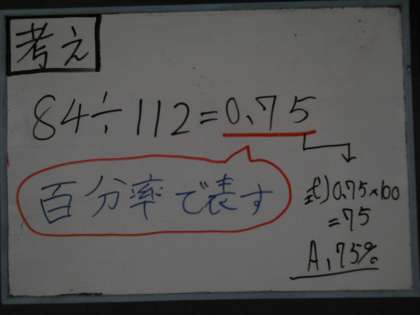 考え
84÷112=0.75
百分率で表す
式)0.75×100
=75
A,75%